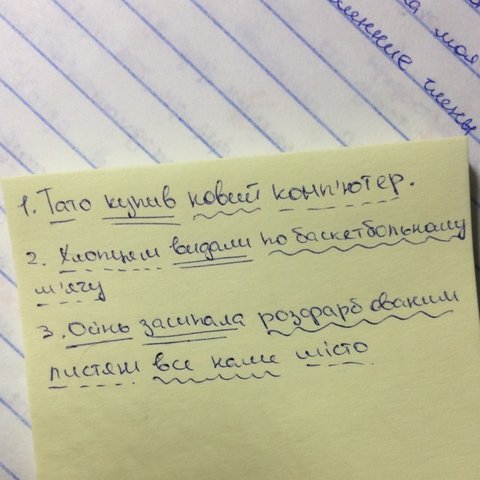 моя
члены
1. Тато купив новий комп'ютер.
2. Хлопцям видали по баскетбольному
м'ячу
3. Осінь засипала розфарбованим
листям все наше місто